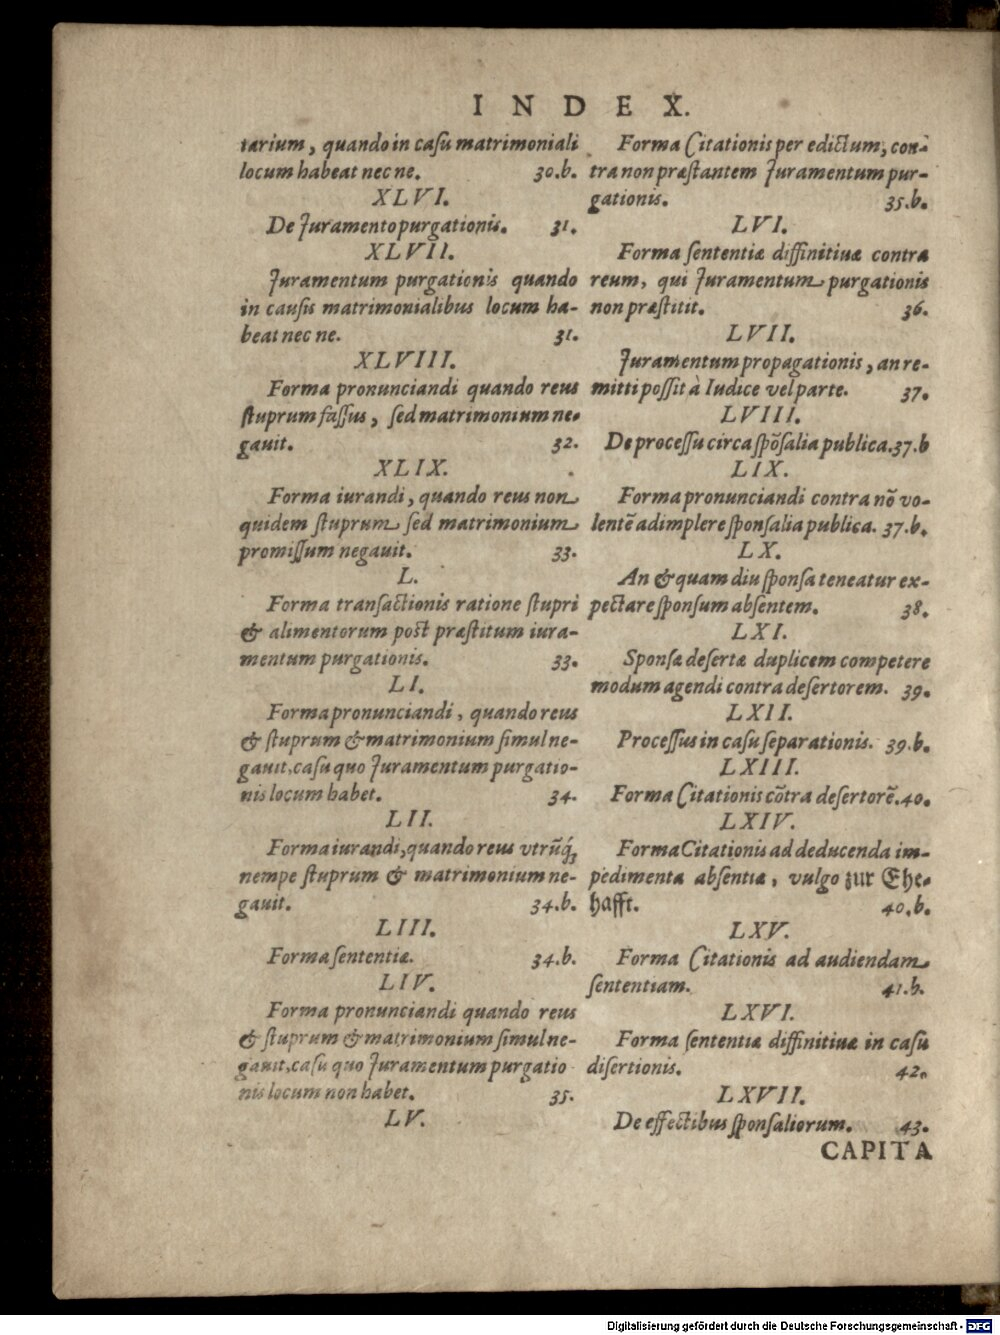 INDEX.
tarium, quando in casu matrimoniali
locum habeat nec ne. 30.b.
XLVI.
De Juramento purgationis. 31.
XLVII.
Juramentum purgationis quando
in causis matrimonialibus locum ha-
beat nec ne. 31.
XLVIII.
Forma pronunciandi quando reus
stuprum fassus, sed matrimonium ne-
gauit. 32.
XLIX.
Forma iurandi, quando reus non
quidem stuprum sed matrimonium
promissum negauit. 33.
L.
Forma transactionis ratione stupri
& alimentorum post præstitum iura-
mentum purgationis. 33.
LI.
Forma pronunciandi, quando reus
& stuprum & matrimonium simul ne-
gauit, casu quo Juramentum purgatio-
nis locum habet. 34.
LII.
Forma iurandi, quando reus vtrũq́;
nempe stuprum & matrimonium ne-
gauit. 34.b.
LIII.
Forma sententiæ. 34.b.
LIV.
Forma pronunciandi quando reus
& stuprum & matrimonium simul ne-
gauit, casu quo Juramentum purgatio
nis locum non habet. 35.
LV.
Forma Citationis per edictum, con-
tra non præstantem Juramentum pur-
gationis. 35.b.
LVI.
Forma sententiæ diffinitiuæ contra
reum, qui Juramentum purgationis
non præstitit. 36.
LVII.
Juramentum propagationis, an re-
mitti possit à Iudice vel parte. 37.
LVIII.
De processu circa spõsalia publica. 37.b
LIX.
Forma pronunciandi contra nõ vo-
lentẽ adimplere sponsalia publica. 37.b.
LX.
An & quam diu sponsa teneatur ex-
pectare sponsum absentem. 38.
LXI.
Sponsæ desertæ duplicem competere
modum agendi contra desertorem. 39.
LXII.
Processus in casu separationis. 39.b.
LXIII.
Forma Citationis cõtra desertorẽ. 40.
LXIV.
Forma Citationis ad deducenda im-
pedimenta absentiæ, vulgo zur Ehe-
hafft. 40.b.
LXV.
Forma Citationis ad audiendam
sententiam. 41.b.
LXVI.
Forma sententiæ diffinitiuæ in casu
disertionis. 42.
LXVII.
De effectibus sponsaliorum. 43.
CAPITA
Digitalisierung gefördert durch die Deutsche Forschungsgemeinschaft - DFG